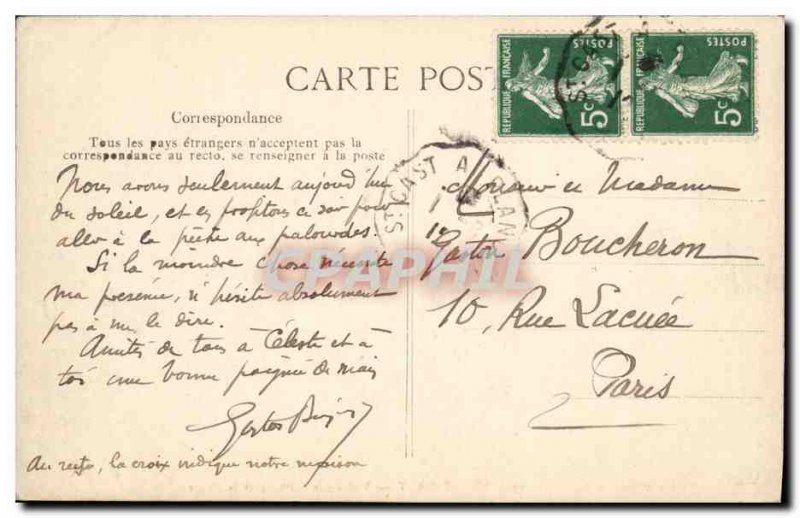 CARTE POST
Correspondance
Tous les pays étrangers n'acceptent pas la
correspondance au recto, se renseigner à la poste
Nous avons seulement aujourd'hui
du soleil, et en profitons ce soir pour
aller à la pêche aux palourdes.
Si la moindre chose nécessite
ma présence, n'hésite absolument
pas à me le dire.
Amitiés de tous à Céleste et à
toi une bonne poignée de main
Gaston
Au recto, la croix indique notre maison
REPUBLIQUE FRANÇAISE
POSTES
5c
REPUBLIQUE FRANÇAISE
POSTES
5c
ST CAS
ST CAST A PLAN
Monsieur et Madame
Gaston Boucheron
10, Rue Lacuée
Paris
CPAPHIL